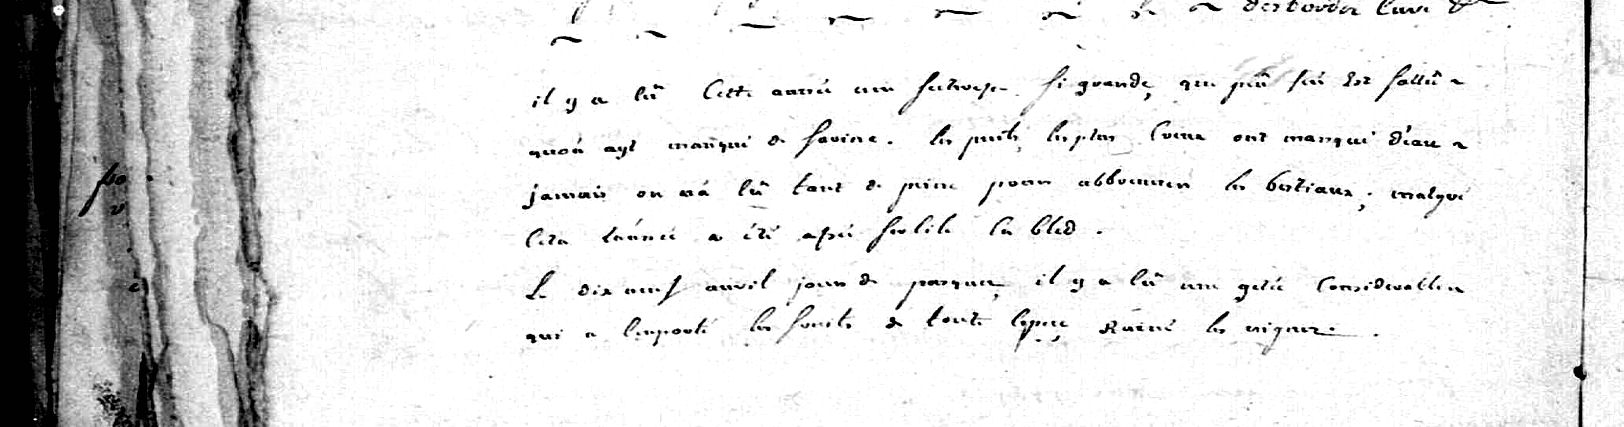 desbordes Curé
il y a Eû Cette année une secheresse si grande, que peû s'en Est fallû
quon ayt manqué de farine. les puits les plus Creux ont manqué d'eau
jamais on n'a Eû tant de peine pour abbreuver les bestiaux; malgré
Cela l'année a été assé fertile En bled.
Le dix neuf avril jour de pasques, il y a Eû une gelée Considerable
qui a Emporté les fruits de toute Espece, & Ruiné les vignes.